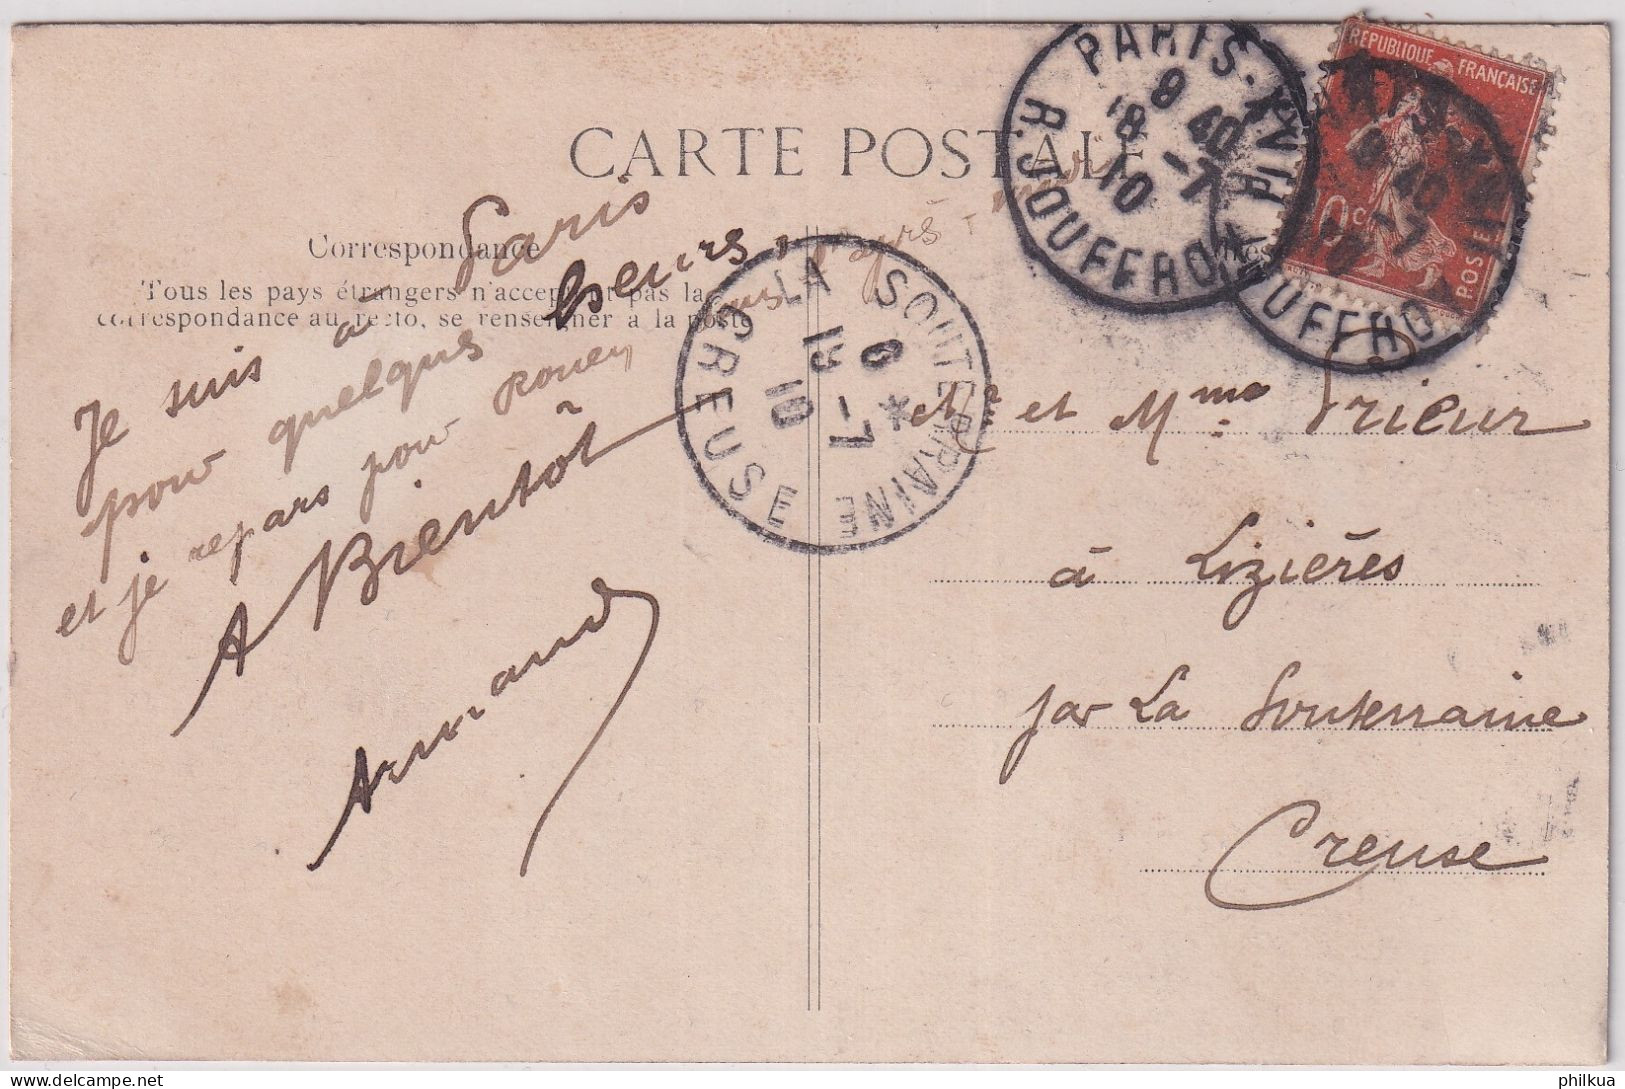 CARTE POSTALE
Correspondance
Tous les pays étrangers n'acceptent pas la
correspondance au recto, se renseigner à la poste
Je suis à Paris
pour quelques heures,
et je repars pour Rouen
A Bientôt
Armand
PARIS · XVIII
8 40
18 -7
10
R. JOUFFROY
REPUBLIQUE FRANÇAISE
10c
POSTES
LA SOUTERRAINE
6
19 -7
10
CREUSE
Mr et Mme Prieur
à Lizières
par La Souterraine
Creuse
philkua